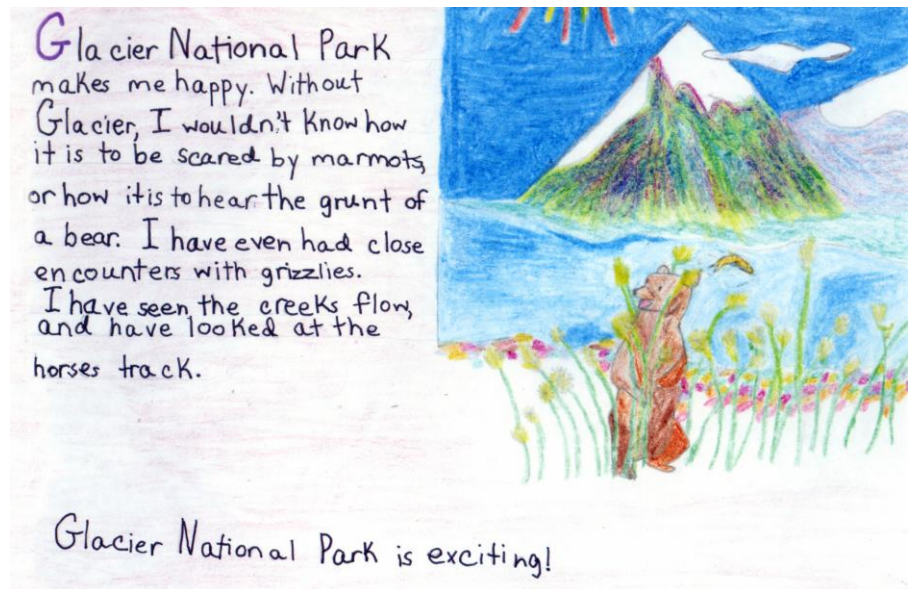 Glacier National Park
makes me happy. Without
Glacier, I wouldn't know how
it is to be scared by marmots,
or how it is to hear the grunt of
a bear. I have even had close
encounters with grizzlies.
I have seen the creeks flow,
and have looked at the
horses track.
Glacier National Park is exciting!